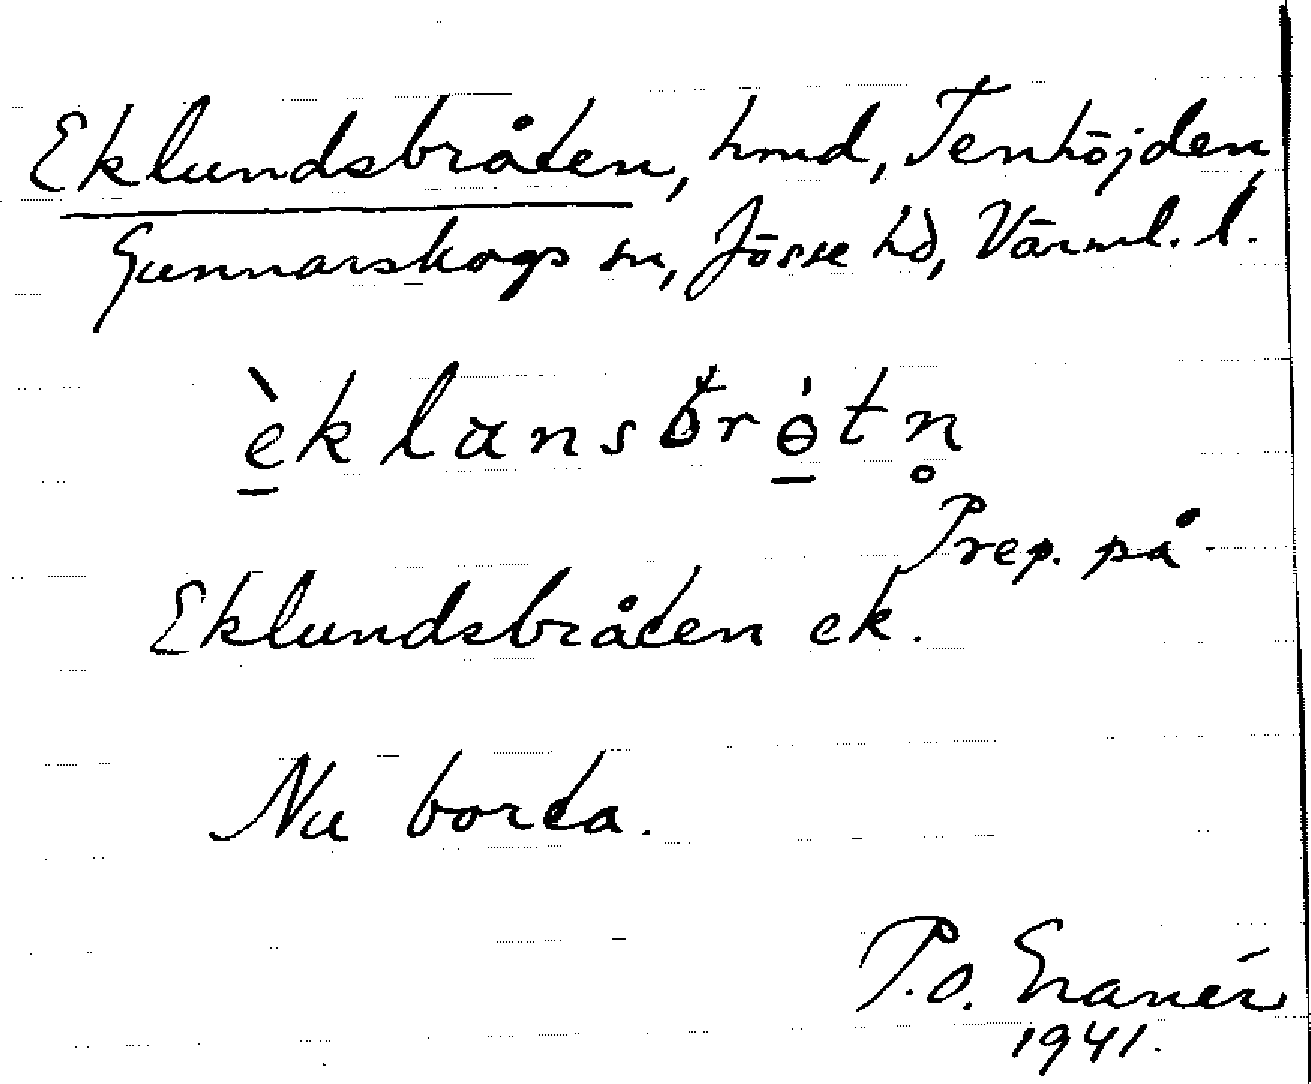 Eklundsbråten, hmd, Tenhöjden,
Gunnarskogs sn, Jösse hd, Värml. l.
èklansbrɵ́tn̥
Prep. på
Eklundsbråten ek.
Nu borta.
P.O. Granér
1941.